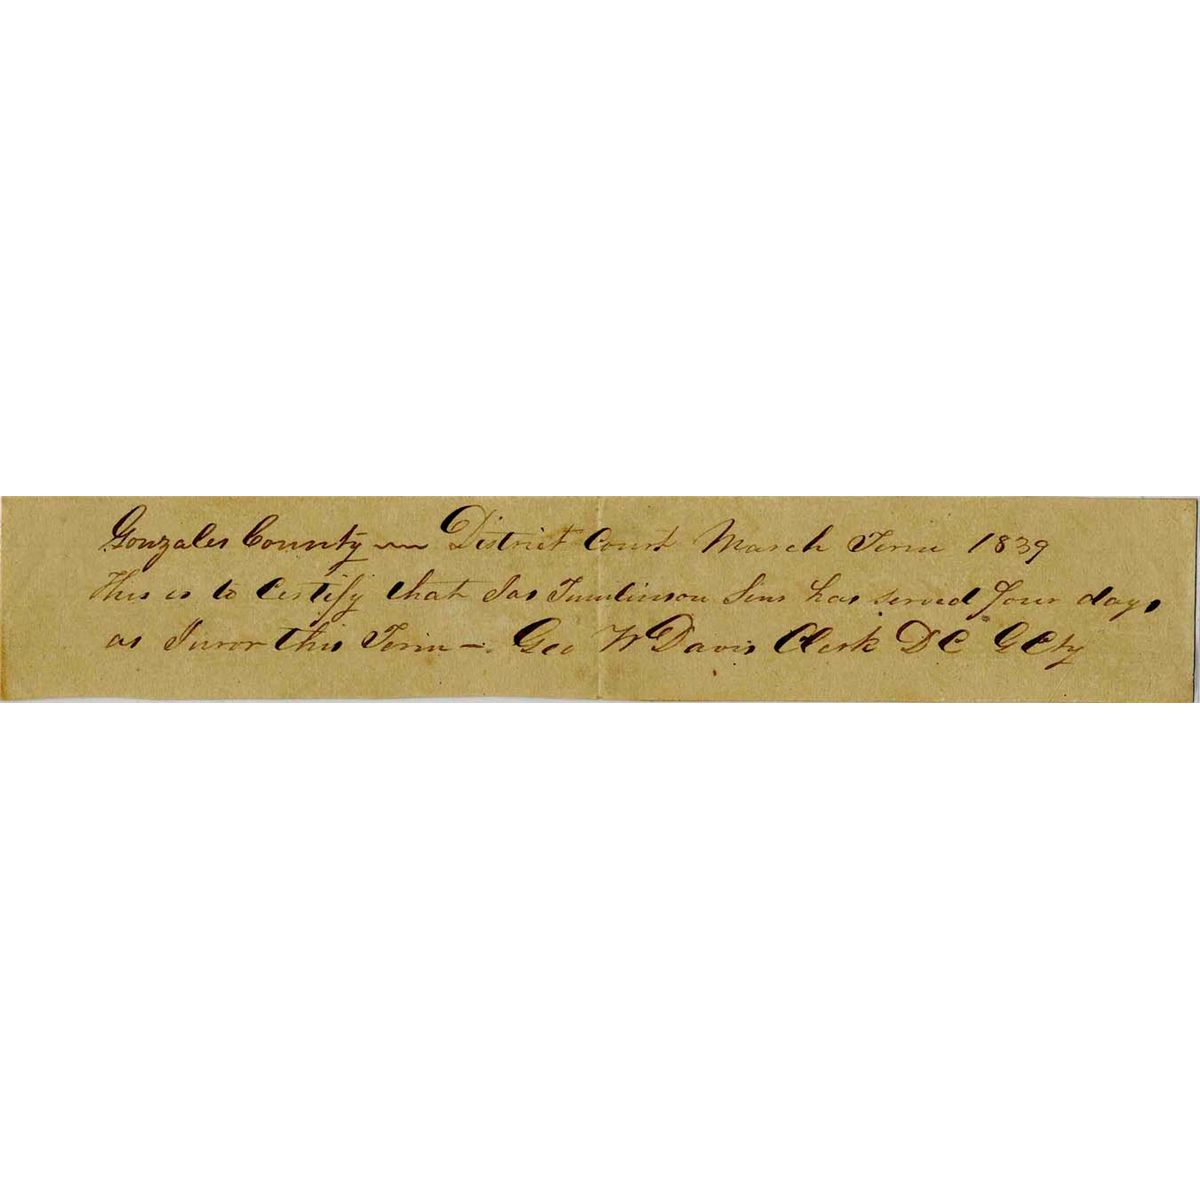 Gonzales County — District Court March Term 1839
This is to Certify that Jas Tumlinson Senr has served four days
as Juror this Term —. Geo W Davis Clerk D C G Cty